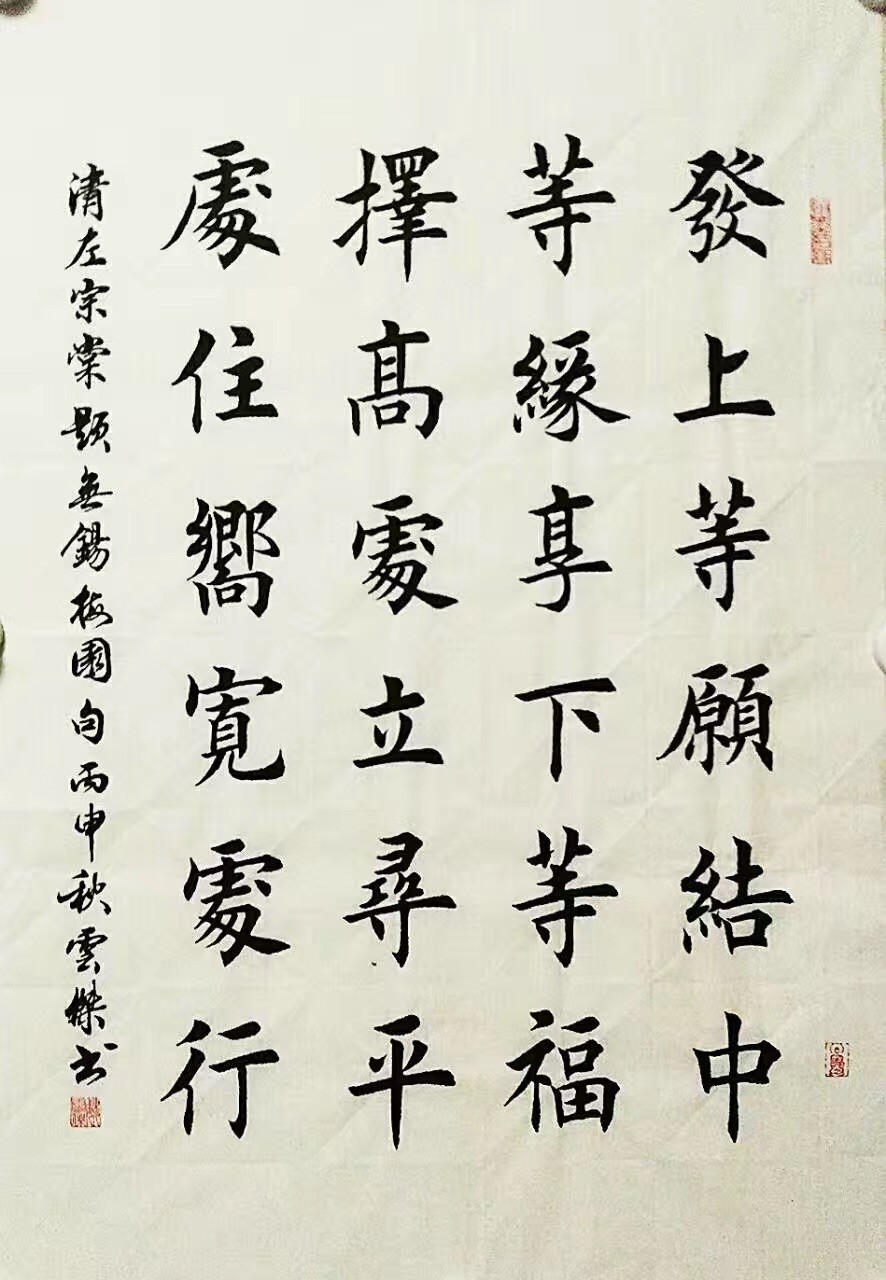 發上等願結中
等緣享下等福
擇高處立尋平
處住嚮寬處行
清左宗棠題無錫梅園句丙申秋雲傑書